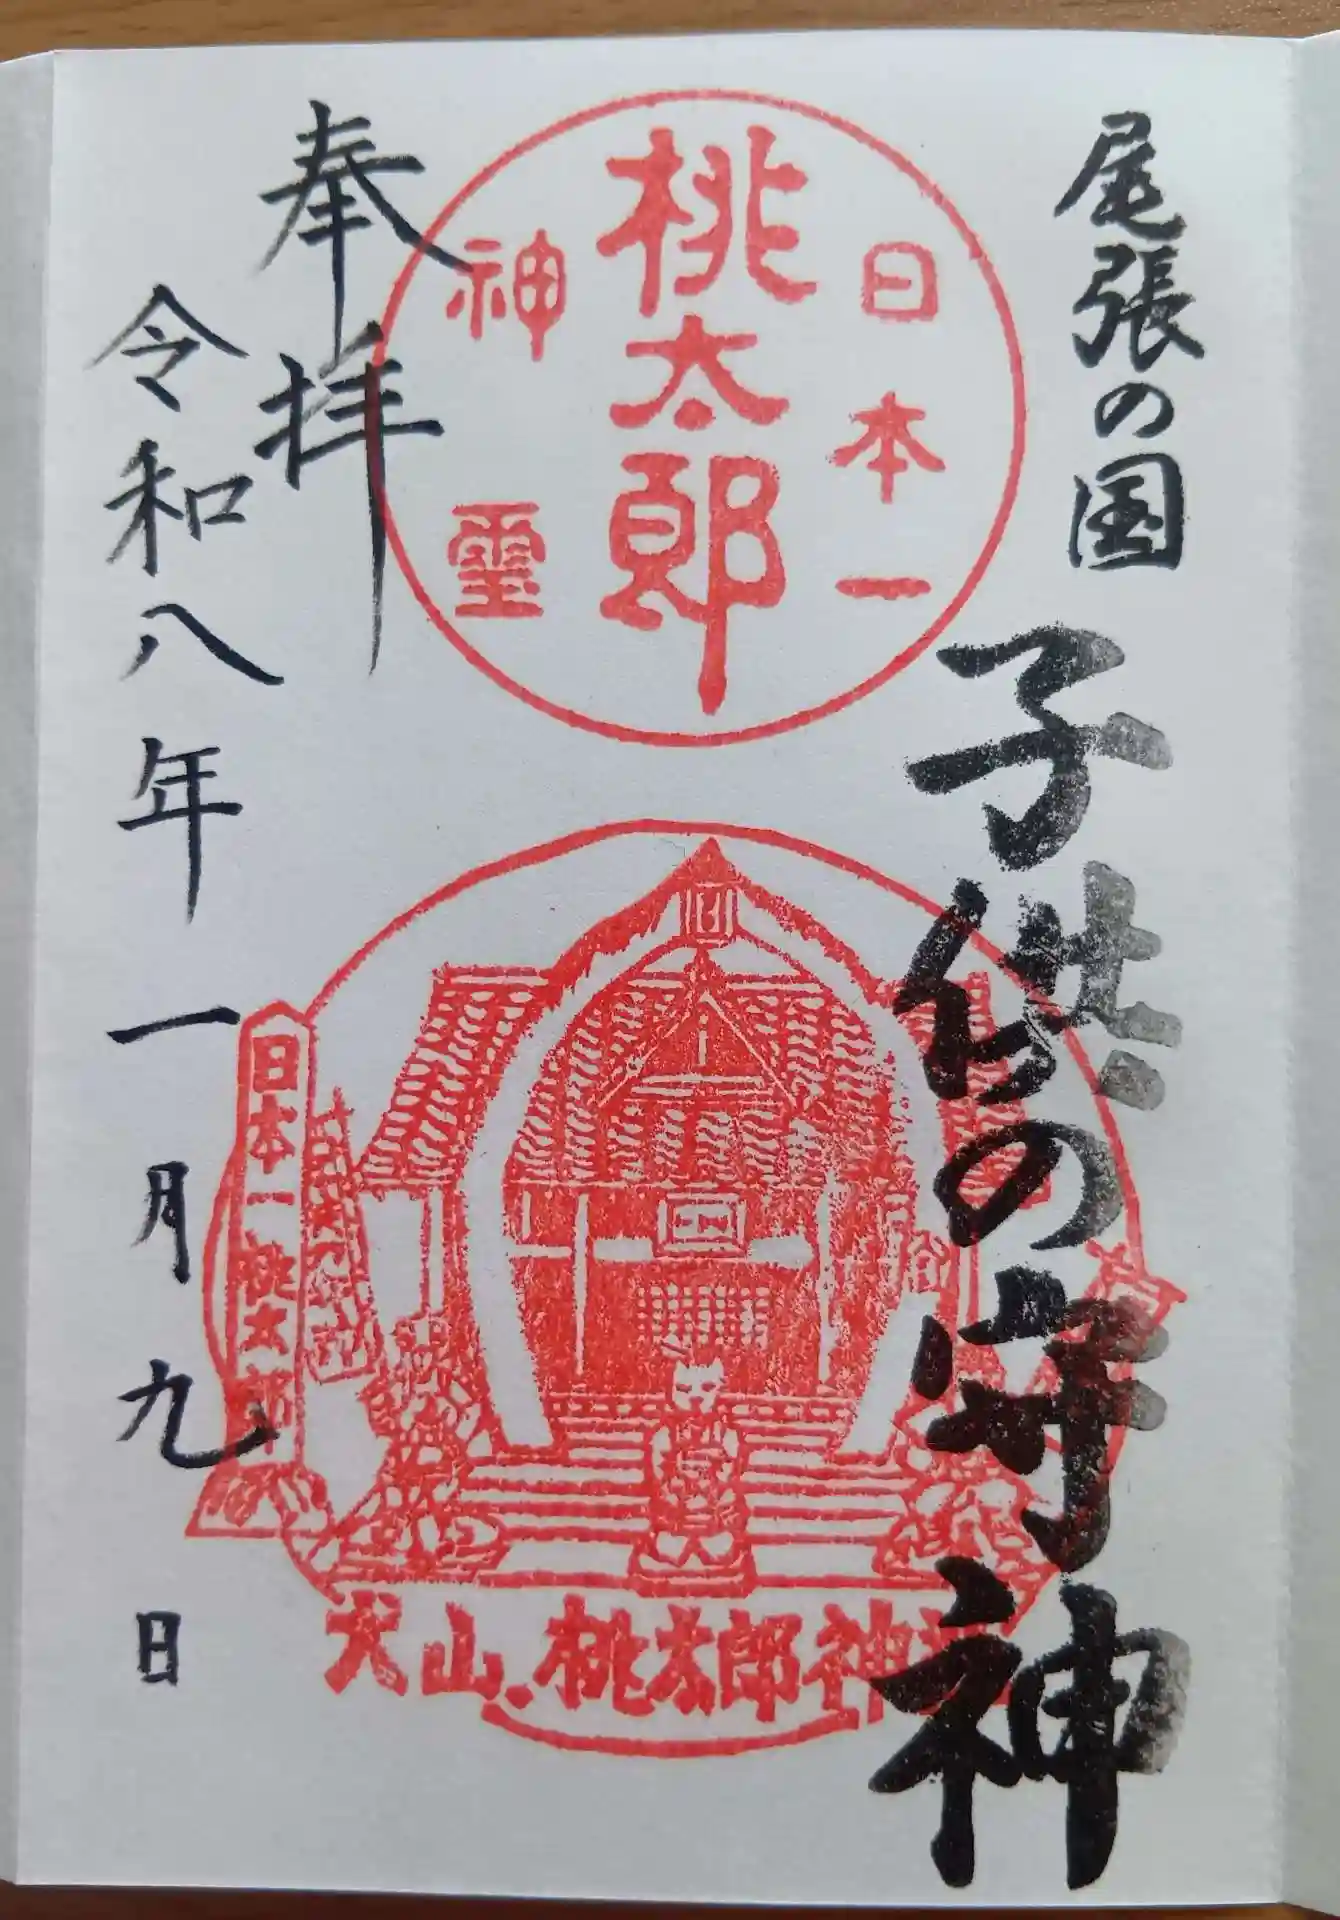 尾張の国
子供の守神
日本一
桃太郎
神霊
奉拝
令和八年一月九日
日本一桃太郎
犬山.桃太郎神